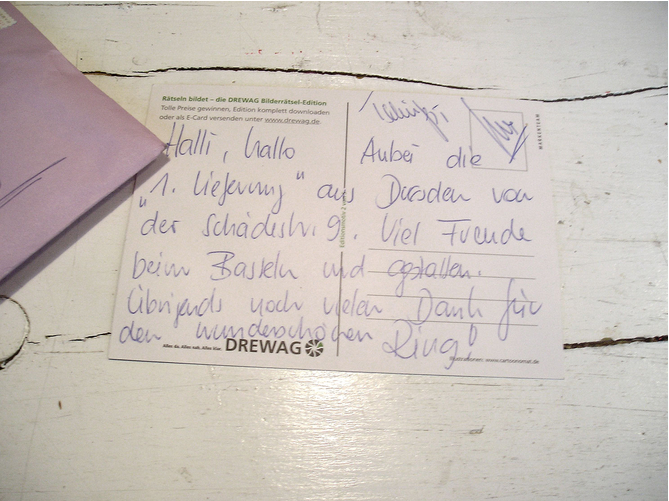 Rätseln bildet – die DREWAG Bilderrätsel-Edition
Tolle Preise gewinnen, Edition komplett downloaden
oder als E-Card versenden unter www.drewag.de.
Halli, hallo
Anbei die
"1. Lieferung" aus Dresden von
der Schädestr. 9. Viel Freude
beim Basteln und gestalten.
Übrigends noch vielen Dank für
den wunderschönen Ring!
Alles da. Alles nah. Alles klar. DREWAG
Illustrationen: www.cartooninat.de